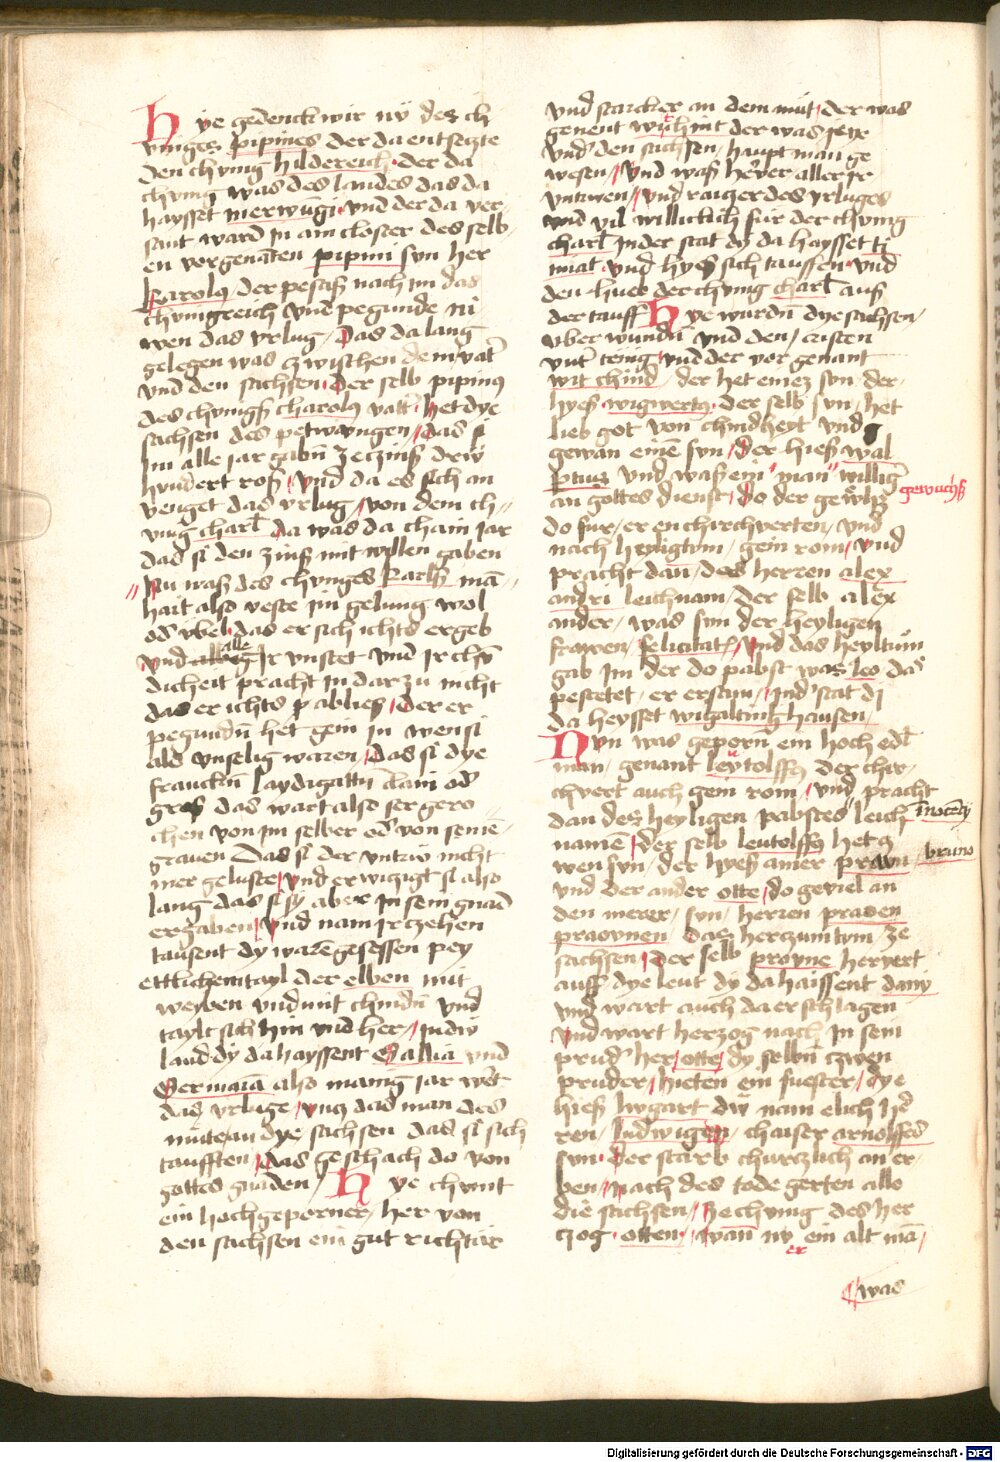 Hye gedenck wir nv̈ des ch
vniges pipines der da entsegte
den chvnig hildereich · der da
chvnig was des landes das da
haysset merwūgi · vnd der da ver
sant ward in ain closter des selb
en vorgenāten pipini svn her
karolꝰ der pesaß nach im das
chvnigreich vnd pegunde ni
wen das vrlug / Das da lang
gelegen was czwischen dem vat̄
vnd den sachsen · Der selb pipinꝰ
des chvnigß charolꝰ vatt̄ · het dye
sachsen des petwungen / das si
im alle jar gabn̄ ze czinß drw
hvndert roß / vnd da es sich an
venget das vrlug / von dem ch
vnig charl̄ da was da chain jar
das si den zinß mit willen gaben
Nu waß des chvniges karlß mā
hait also veste im gelung wol
od̄ vbel · das er sich ichts ergeb
vnd alle Ir vnstet vnd ir chv̄
dicheit pracht in dar zu nicht
das er ichts p abließ / Der er
pegundn̄ het gein in wen si
als vnselig waren / Das si dye
franckn̄ laydigattn̄ clain od̄
groß das wart also ser gero
chen von im selber od̄ von seinē
grauen Das si der vntrw nicht
mer geluste / vnd er wizigt si also
lang das si sy aber in sein gnad
ergaben / vnd nam ir zehen
tausent dy warē gesessen pey
ettlichem tayl der elben mit
weyben vnd mit chindn̄ vnd
taylt sich hin vnd her / in dw
land dy da hayssent Gallia vnd
Germaīa also manig jar wēt
das vrluge / vncz das man des
mutean dye sachsen das si sich
taufften / das geschach do von
gottes gnaden / Hye chvmt
ein hochgeporner / her von
den sachsen ein gut richtār
vnd starcker an dem můt / der was
genent wūhint der was seyr
vnd̄ den sachsen / hauptman ge
wesen / vnd waß hēver aller ir
vntrwen / vnd raizer des vrluges
vnd vil willicklich fur der chvnig
charl̄ in der stat dy da haysset ti
miat · vnd hyeß sich tauffen vnd
den hueb der chvnig charl̄ auß
der tauff Hye wurdn̄ dye sachsen /
vber wundn̄ vnd den / cristen
vnt̄ tenig vnd der vor genant
wit chind / der het einez svn · der
hyeß · wigwertꝰ · der selb svn / het
lieb got von chindheyt vnd
gewan einē svn / der hieß wal
ptus vnd waß ein man williḡ
an gottes dienst / do der gewuchß
do fur / er en chirchverten / vnd
nach heyligtvm / gein rom / vnd
pracht dan / des herren alex
andri leichnam / der selb alex
ander / was svn der heyligen
frawen / felicitat̄ / vnd das heyltūm
gab im der do pabst was leo das
pestetet / er ersam / ind̄ stat di
da heysset wigalting hausen /
Nvn was geporn̄ ein hoch edl̄
man / genant leytolffꝰ der chir
chvert auch gein rom / vnd pracht
dan dez heyligen pabstes leich Inocēcij
namē / der selb leutolffꝰ het cz
wen svn / der hyeß ainer prawn bruno
vnd der ander otte / do geviel an
den merer / svn / herren praoen
praovnen das herczumtvm ze
sachsen / Der selb provne hervert
auff dye leut dy da haissent dany
vnd wart auch da erschlagen
vnd wart herzog nach in sein
prud̄ her / otte / dy selbn̄ czwen
pruder / hieten ein suester / dye
hieß lwgart dw nam elich h̄
ren / ludwigen / chaiser arnolffes
svn · Der starb churczlich an er
ben / nach des tode gerten alle
die sachsen / ze chvnig des her
czog · otten · / wan er nv ein alt mā /
was